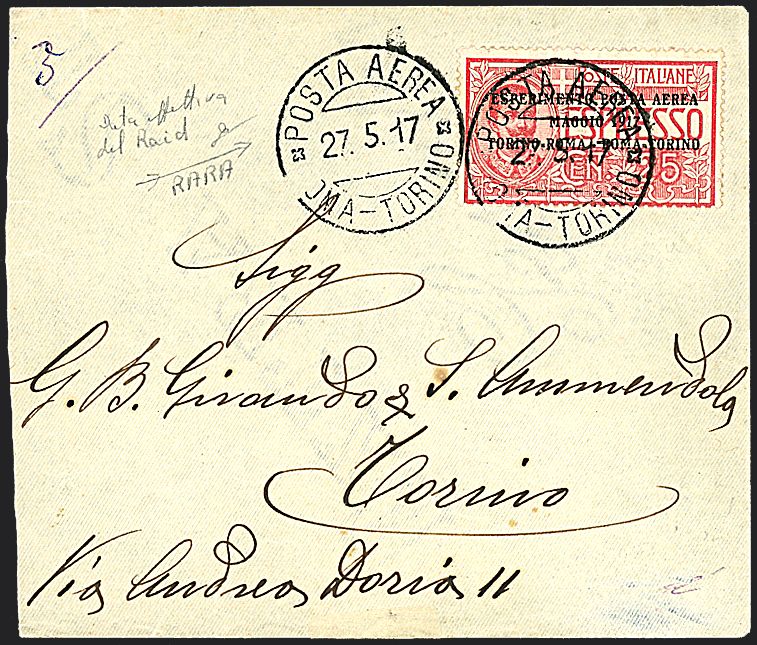 3
Data effettiva
del Raid
RARA
POSTA AEREA
27.5.17
ROMA-TORINO
POSTE ITALIANE
ESPERIMENTO POSTA AEREA
MAGGIO 1917
TORINO-ROMA · ROMA-TORINO
ESPRESSO
CEN. 25
POSTA AEREA
27.5.17
ROMA-TORINO
Sigg
G. B. Girando & S. Ammendola
Torino
Via Andrea Doria 11